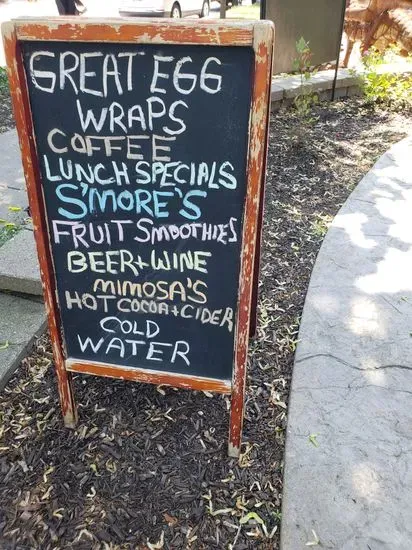 GREAT EGG
WRAPS
COFFEE
LUNCH SPECIALS
S'MORE'S
FRUIT SMOOTHIES
BEER+WINE
MIMOSA'S
HOT COCOA+CIDER
COLD
WATER